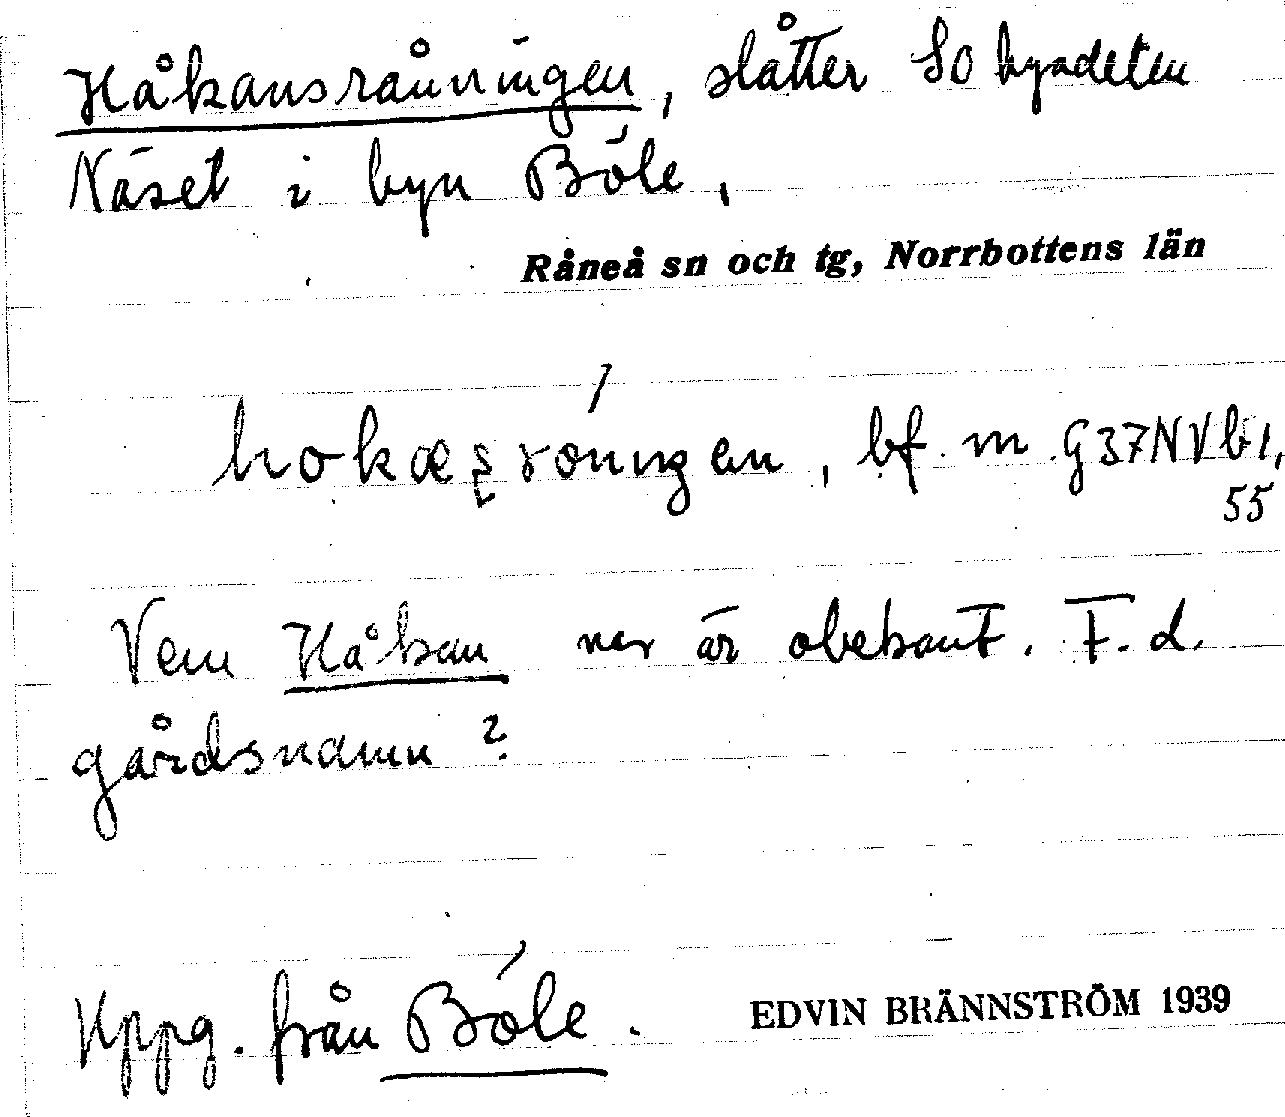 Håkansråningen, slåtter SO bysdelen
Näset i byn Böle,
Råneå sn och tg, Norrbottens län
bf. m G37NVb1,
55
Vem Håkan var är obekant. F.d.
gårdsnamn?
Uppg. från Böle.
EDVIN BRÄNNSTRÖM 1939